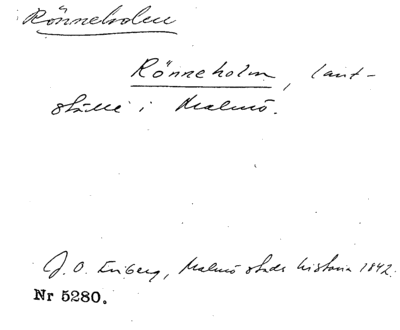 Rönneholm
Rönneholm, lant-
ställe i Malmö.
J. O. Friberg, Malmö stads historia 1842.
Nr 5280.